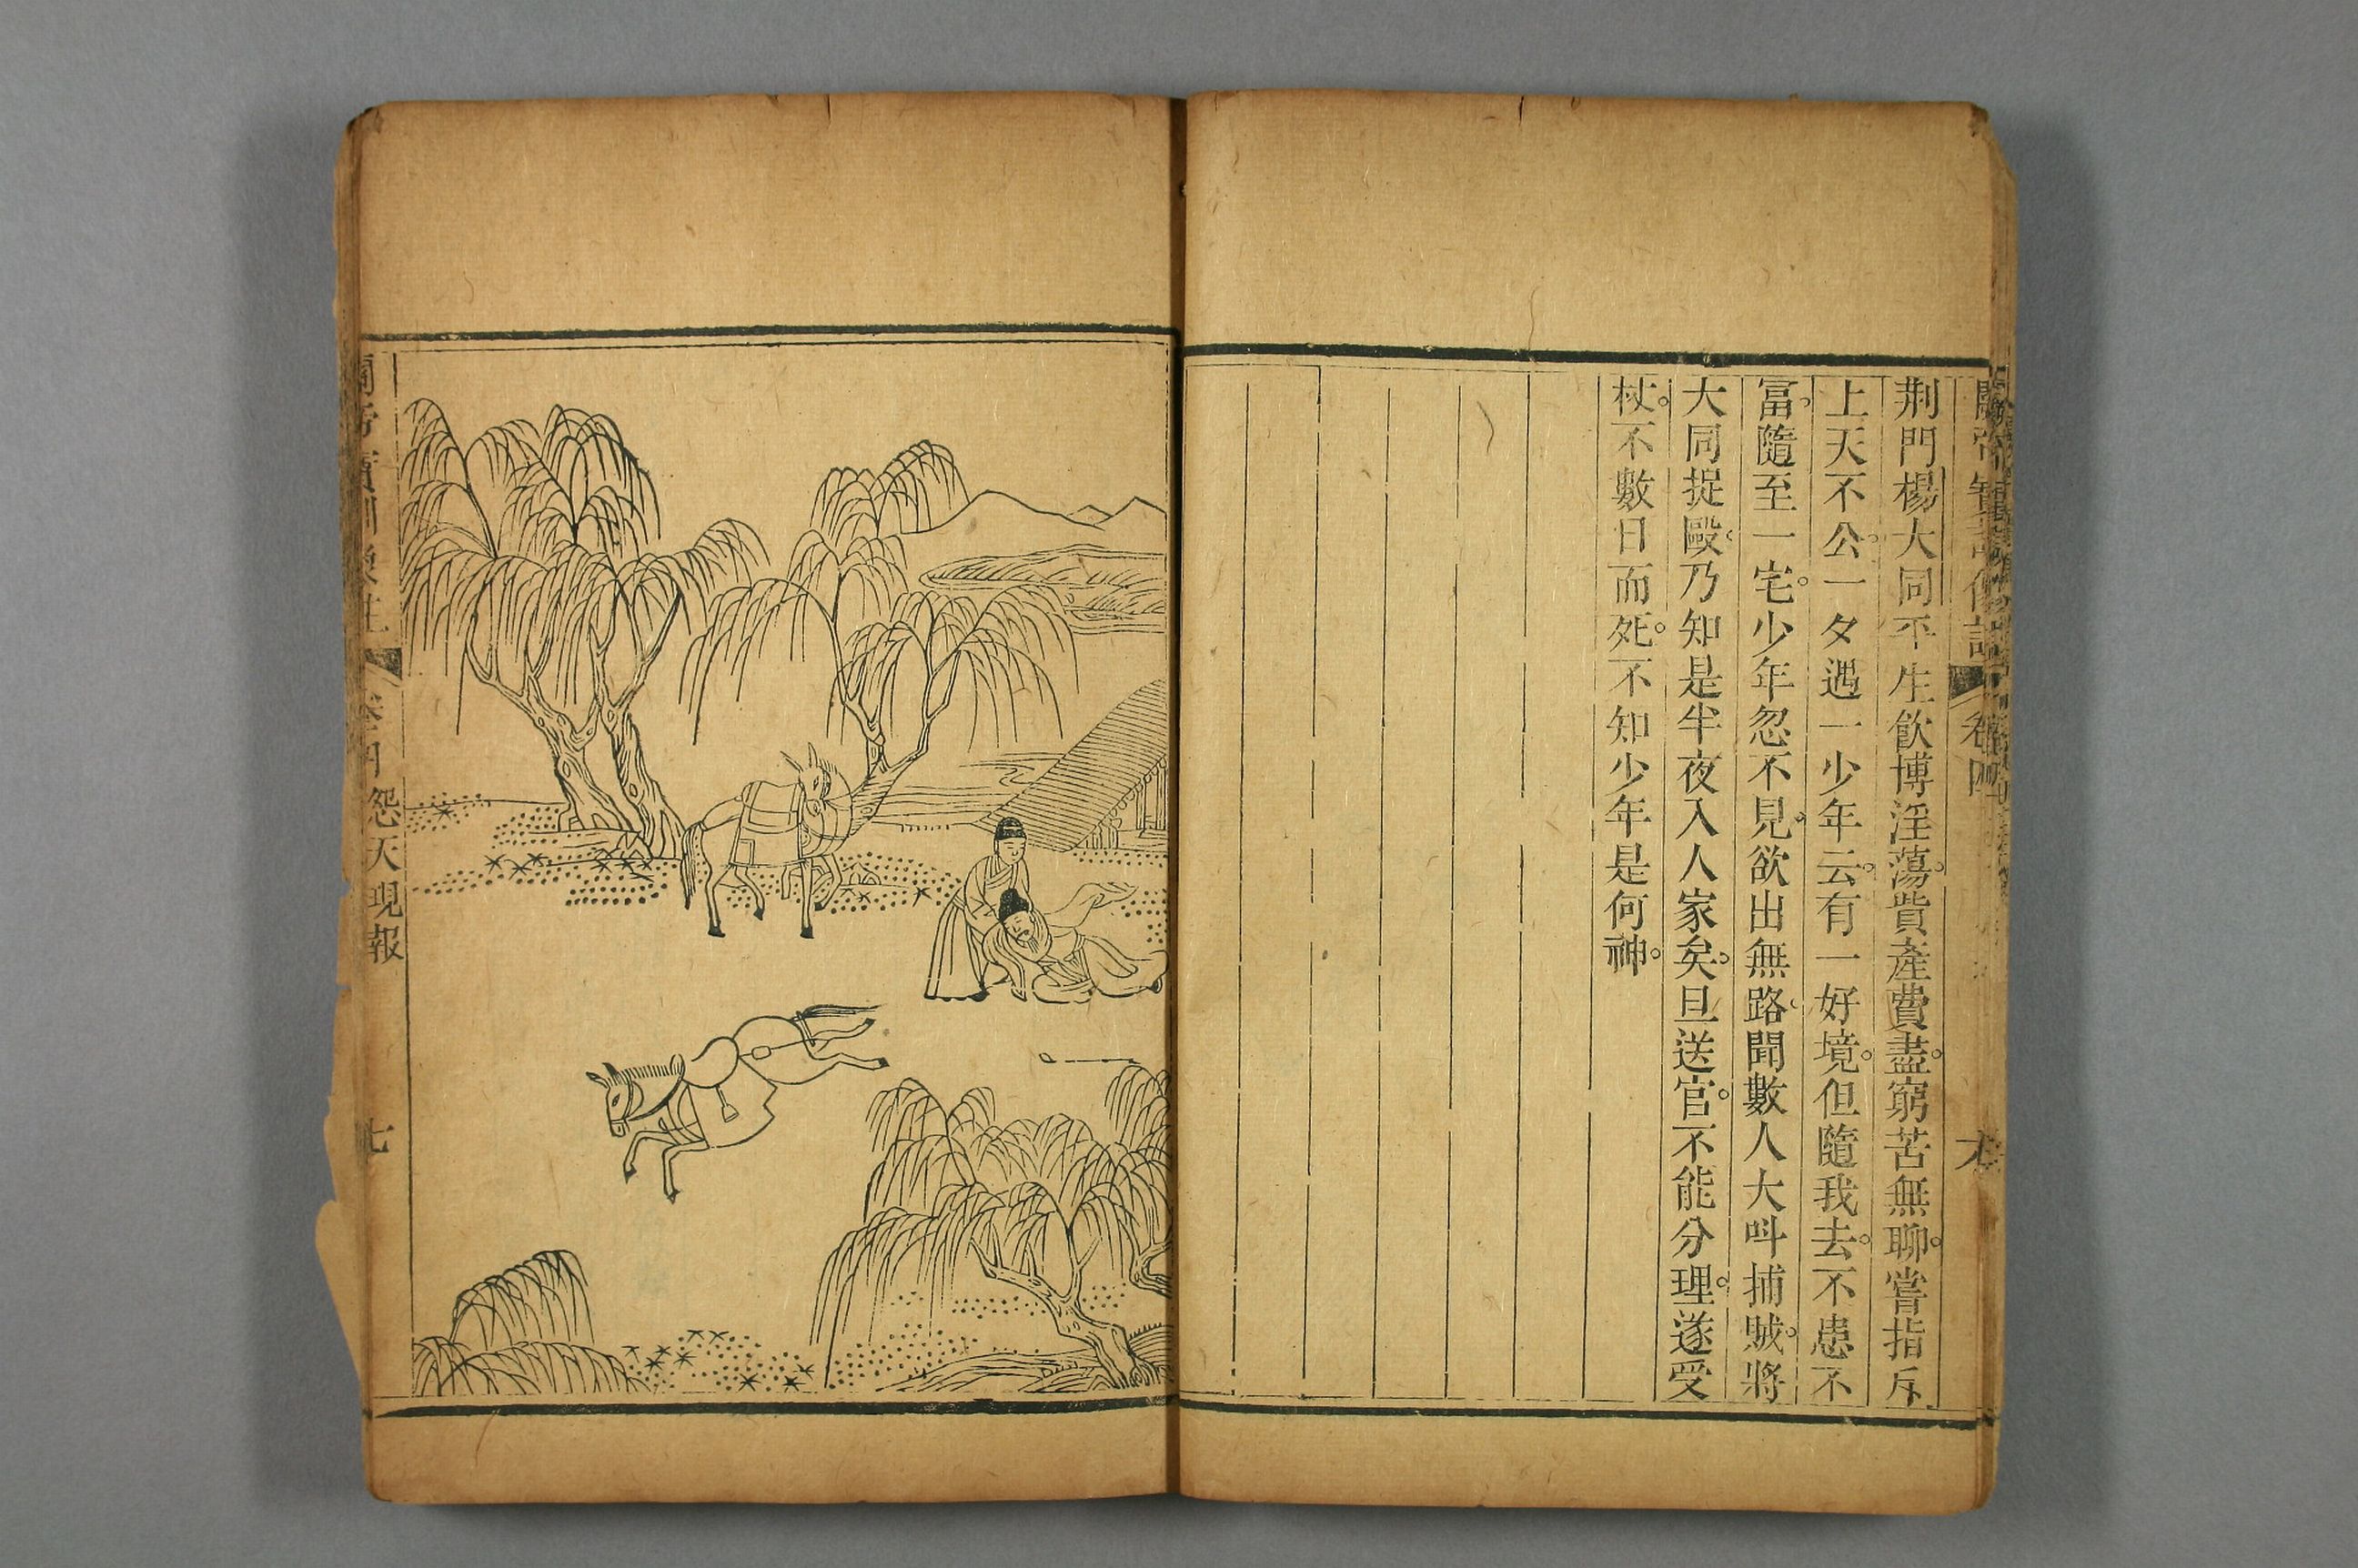 荆門楊大同平生飲博淫蕩貲產費盡。窮苦無聊。嘗指斥
上天不公。一夕遇一少年云。有一好境。但隨我去。不患不
冨。隨至一宅。少年忽不見。欲出無路。聞數人大呌捕賊。將
大同捉毆。乃知是半夜入人家矣。旦送官。不能分理。遂受
杖。不數日而死。不知少年是何神。
怨天現報
七